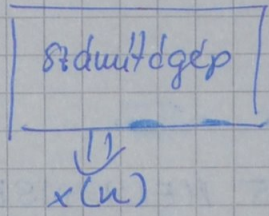 számítógép
x(n)